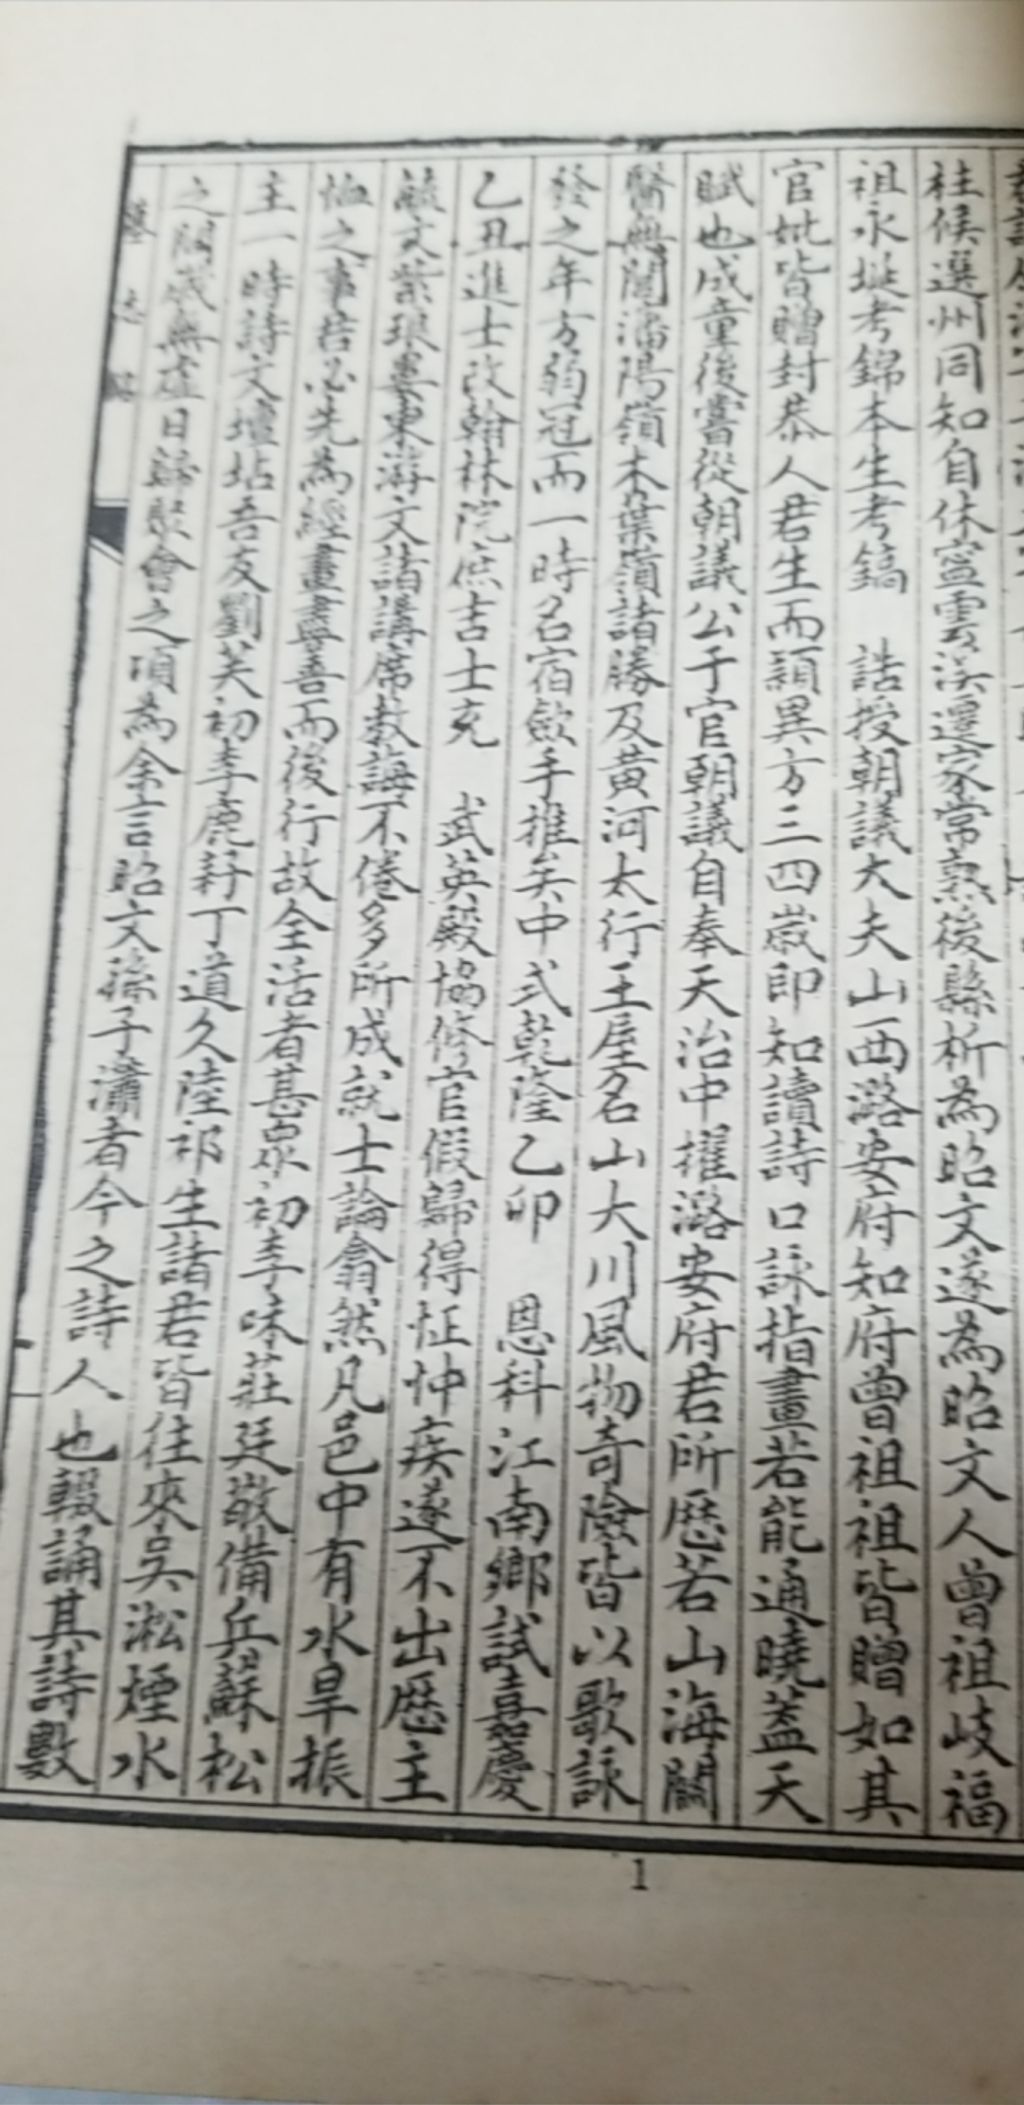 桂候選州同知自休寧雲溪遷家常熟後縣析為昭文遂為昭文人曾祖岐福
祖永埏考錦本生考鎬 誥授朝議大夫山西潞安府知府曾祖祖皆贈如其
官妣皆贈封恭人君生而穎異方三四歲即知讀詩口詠指畫若能通曉蓋天
賦也成童後嘗從朝議公于官朝議自奉天治中擢潞安府君所歷若山海關
醫無閭瀋陽嶺木葉嶺諸勝及黃河太行王屋名山大川風物奇險皆以歌詠
發之年方弱冠而一時名宿斂手推矣中式乾隆乙卯 恩科江南鄉試嘉慶
乙丑進士改翰林院庶吉士充 武英殿協修官假歸得怔忡疾遂不出歷主
毓文紫琅婁東游文諸講席教誨不倦多所成就士論翕然凡邑中有水旱振
恤之事君必先為經畫盡善而後行故全活者甚眾初李味莊廷敬備兵蘇松
主一時詩文壇坫吾友劉芙初李鹿耔丁道久陸祁生諸君皆往來吳淞煙水
之間歲無虛日歸聚會之頃為余言昭文孫子瀟者今之詩人也輟誦其詩數
墓志銘
1